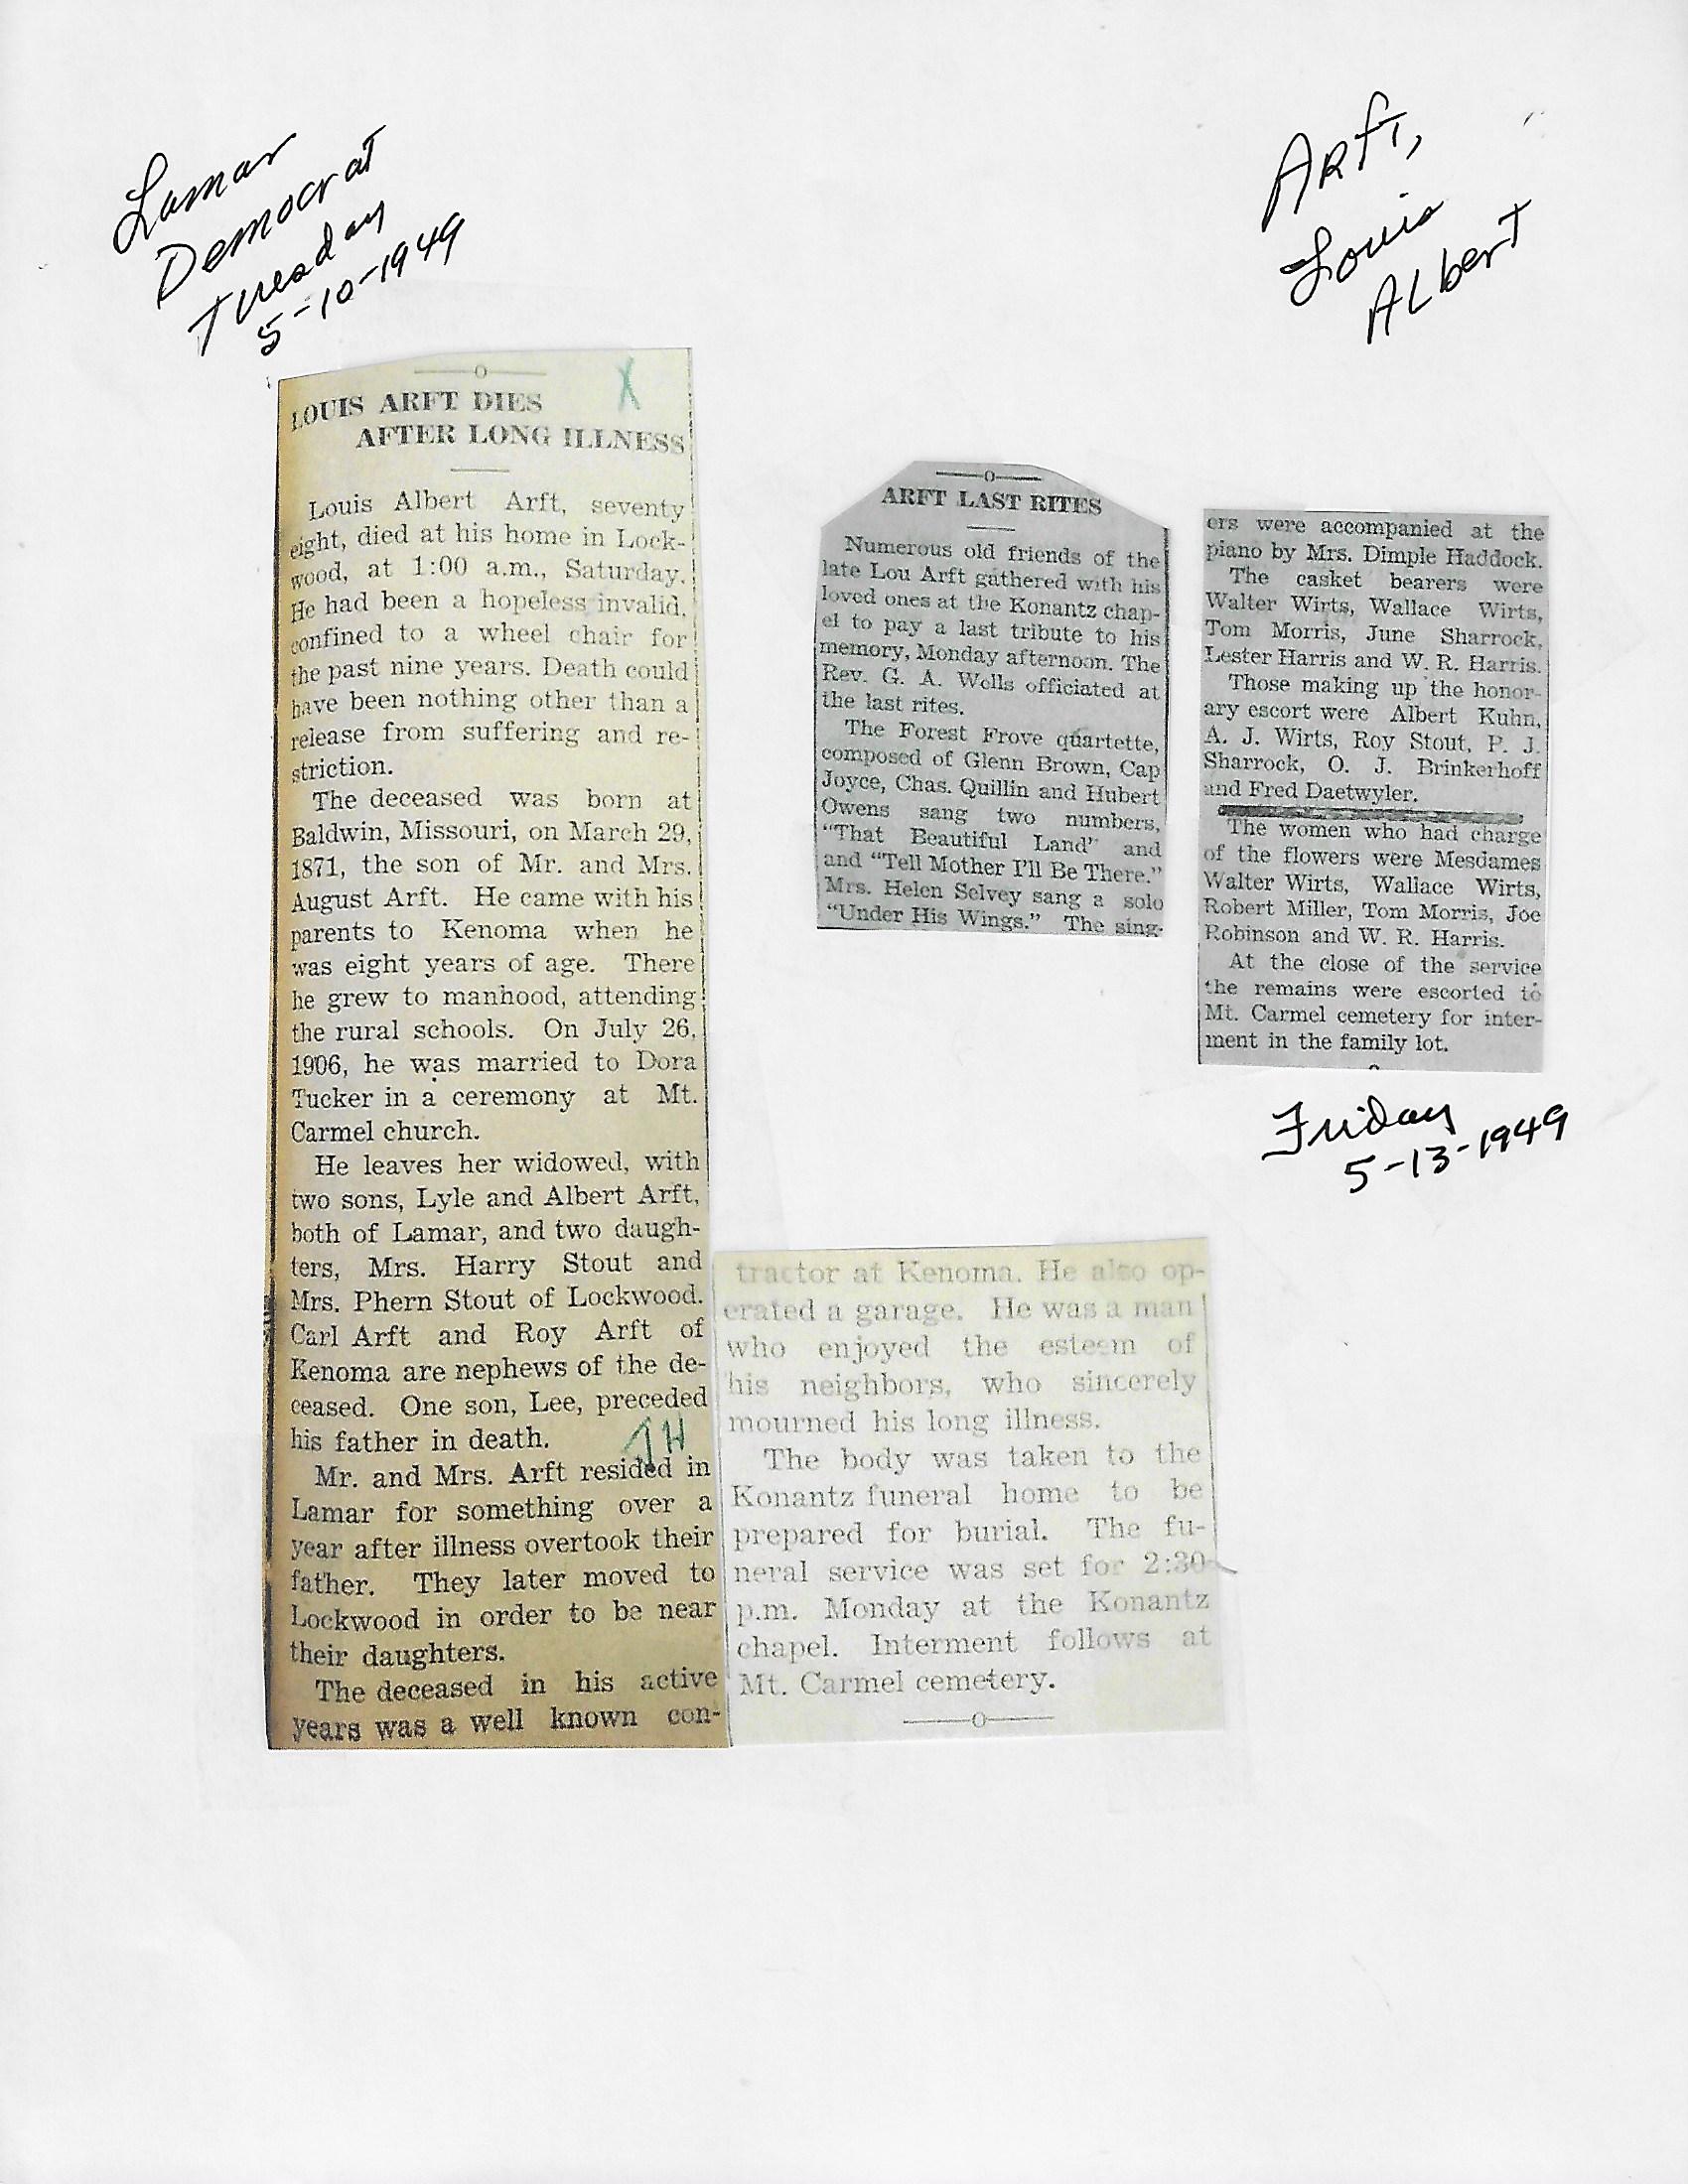 Lamar
Democrat
Tuesday
5-10-1949
Arft,
Louis
Albert
—o—
X
LOUIS ARFT DIES
AFTER LONG ILLNESS
Louis Albert Arft, seventy
eight, died at his home in Lock-
wood, at 1:00 a.m., Saturday.
He had been a hopeless invalid,
confined to a wheel chair for
the past nine years. Death could
have been nothing other than a
release from suffering and re-
striction.
The deceased was born at
Baldwin, Missouri, on March 29,
1871, the son of Mr. and Mrs.
August Arft. He came with his
parents to Kenoma when he
was eight years of age. There
he grew to manhood, attending
the rural schools. On July 26,
1906, he was married to Dora
Tucker in a ceremony at Mt.
Carmel church.
He leaves her widowed, with
two sons, Lyle and Albert Arft,
both of Lamar, and two daugh-
ters, Mrs. Harry Stout and
Mrs. Phern Stout of Lockwood.
Carl Arft and Roy Arft of
Kenoma are nephews of the de-
ceased. One son, Lee, preceded
his father in death.
JH
Mr. and Mrs. Arft resided in
Lamar for something over a
year after illness overtook their
father. They later moved to
Lockwood in order to be near
their daughters.
The deceased in his active
years was a well known con-
tractor at Kenoma. He also op-
erated a garage. He was a man
who enjoyed the esteem of
his neighbors, who sincerely
mourned his long illness.
The body was taken to the
Konantz funeral home to be
prepared for burial. The fu-
neral service was set for 2:30
p.m. Monday at the Konantz
chapel. Interment follows at
Mt. Carmel cemetery.
—o—
—o—
ARFT LAST RITES
Numerous old friends of the
late Lou Arft gathered with his
loved ones at the Konantz chap-
el to pay a last tribute to his
memory, Monday afternoon. The
Rev. G. A. Wells officiated at
the last rites.
The Forest Frove quartette,
composed of Glenn Brown, Cap
Joyce, Chas. Quillin and Hubert
Owens sang two numbers,
"That Beautiful Land" and
and "Tell Mother I'll Be There."
Mrs. Helen Selvey sang a solo
"Under His Wings." The sing-
ers were accompanied at the
piano by Mrs. Dimple Haddock.
The casket bearers were
Walter Wirts, Wallace Wirts,
Tom Morris, June Sharrock,
Lester Harris and W. R. Harris.
Those making up the honor-
ary escort were Albert Kuhn,
A. J. Wirts, Roy Stout, P. J.
Sharrock, O. J. Brinkerhoff
and Fred Daetwyler.
The women who had charge
of the flowers were Mesdames
Walter Wirts, Wallace Wirts,
Robert Miller, Tom Morris, Joe
Robinson and W. R. Harris.
At the close of the service
the remains were escorted to
Mt. Carmel cemetery for inter-
ment in the family lot.
Friday
5-13-1949